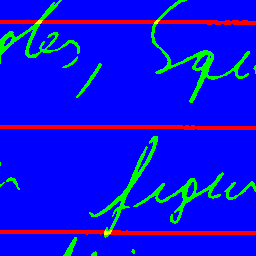 ples, Squ
n figur